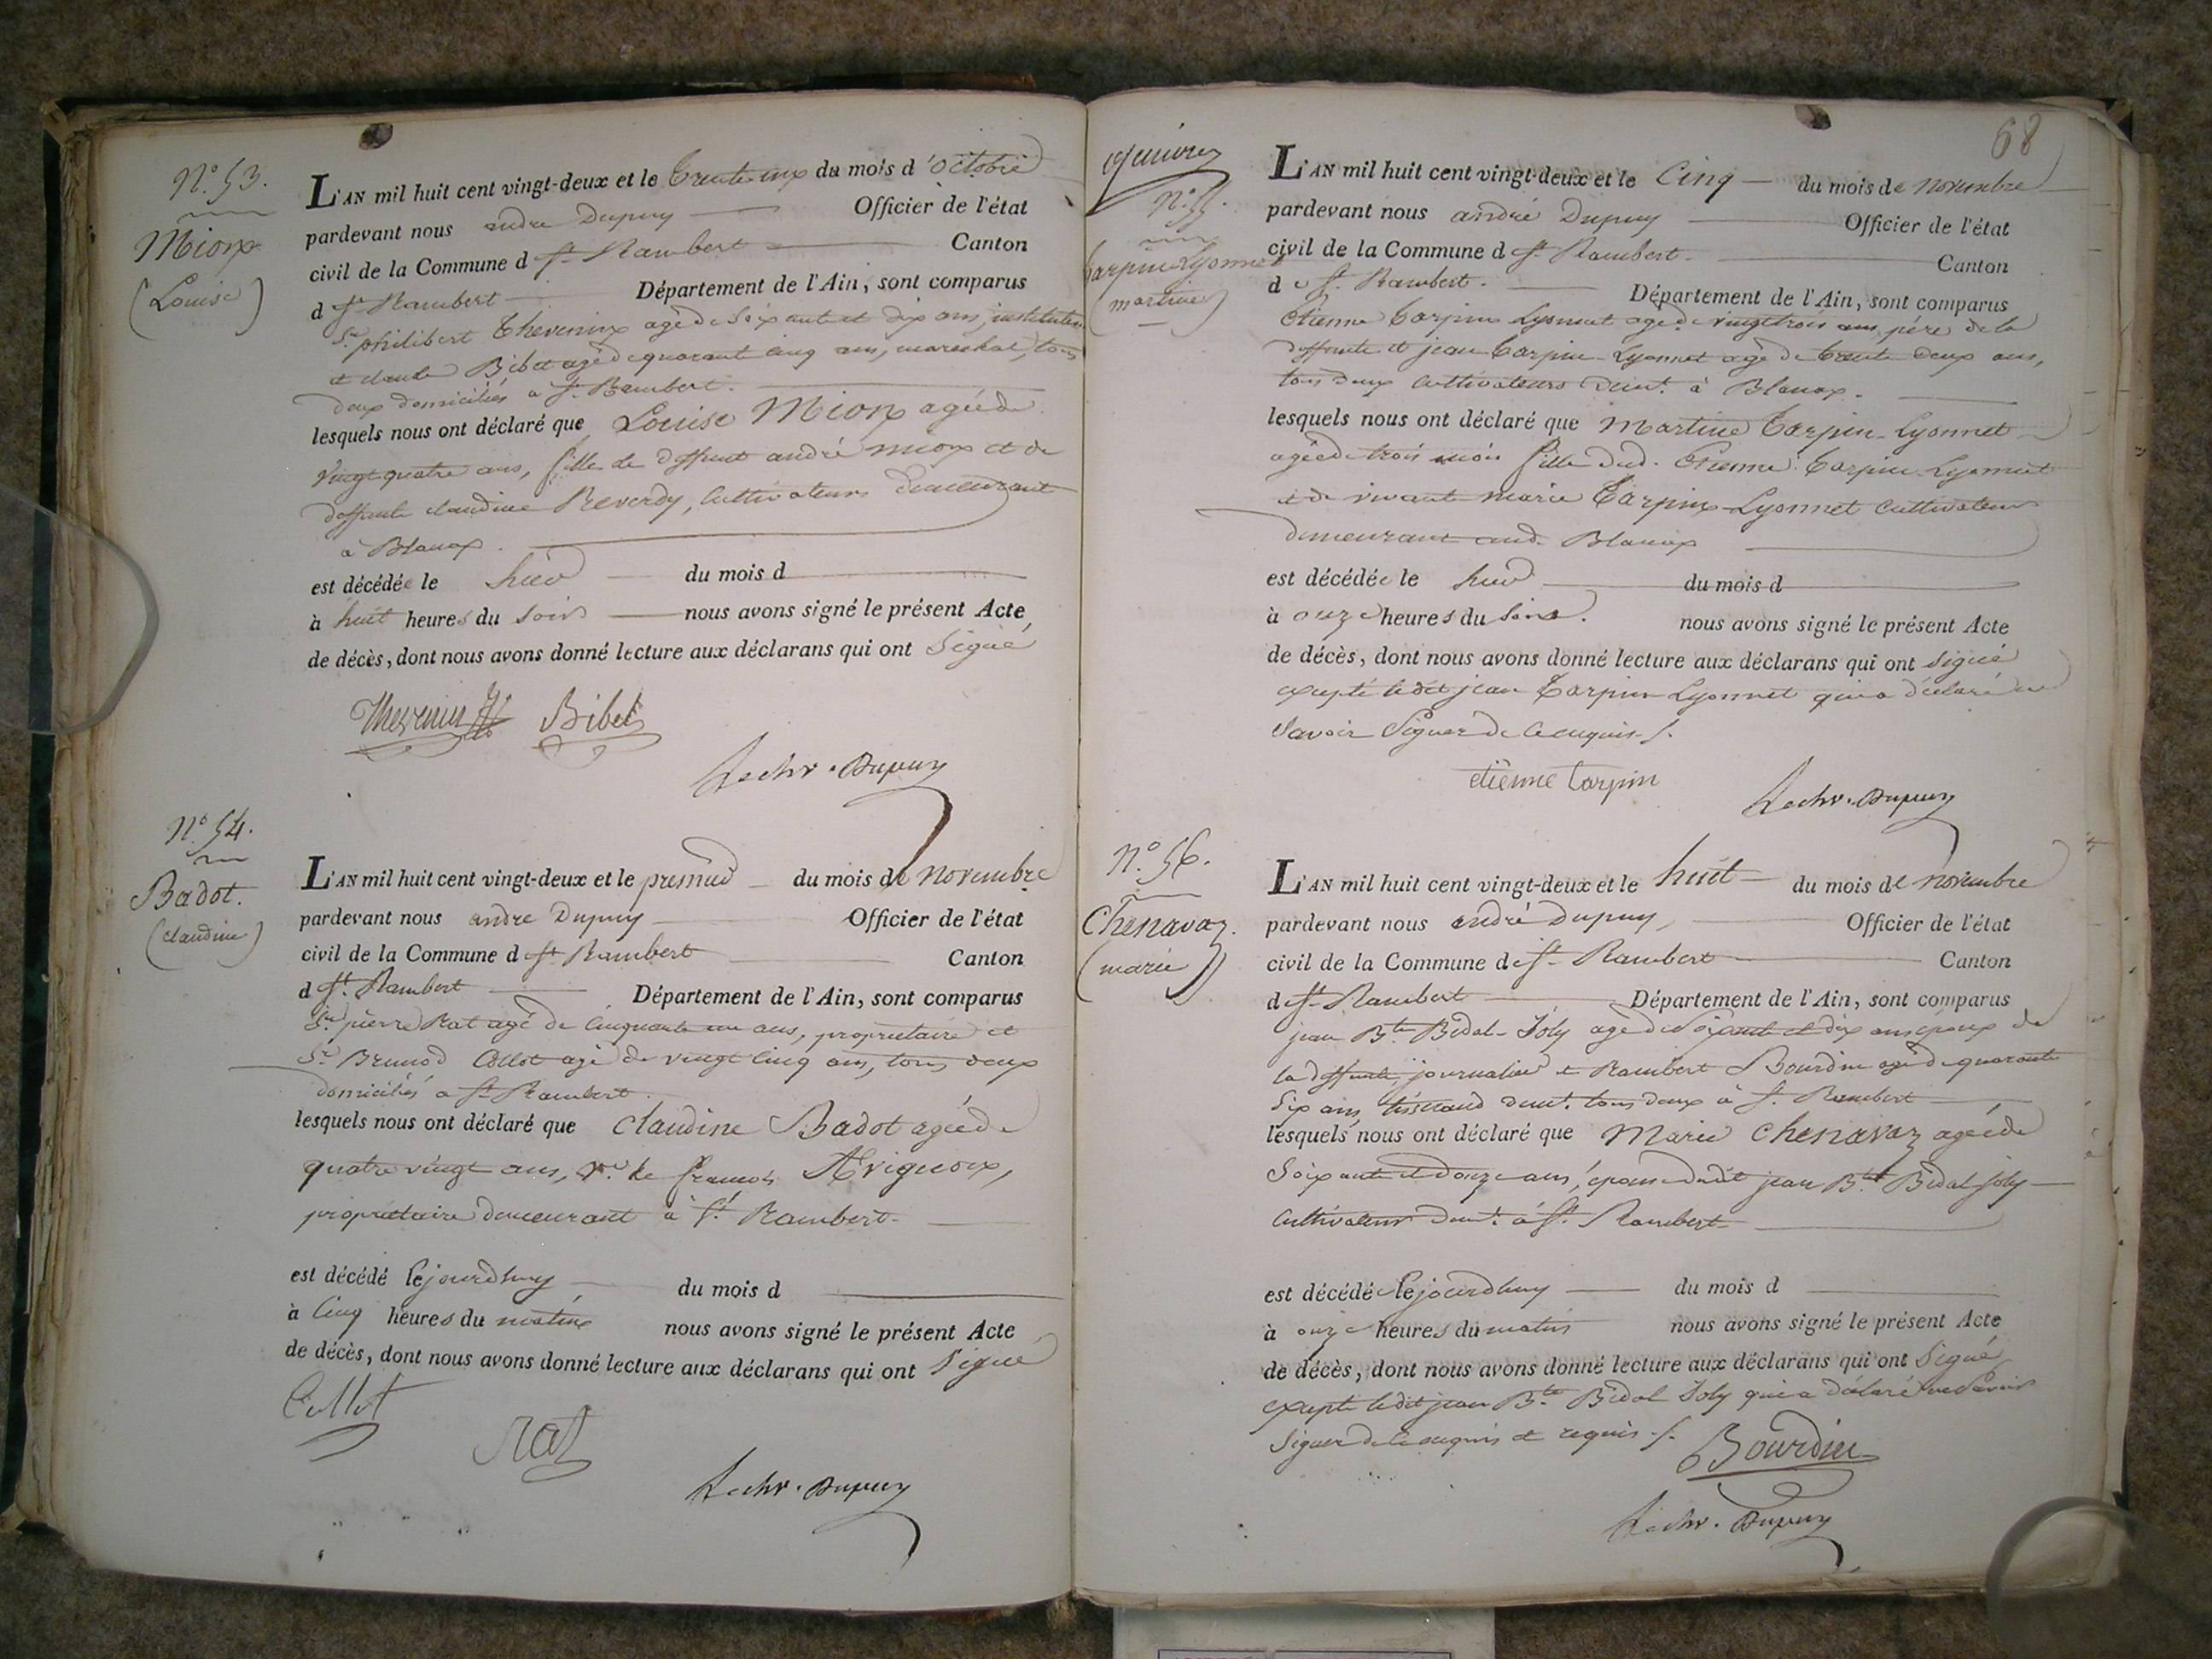 N.º 53.
Mionx
(Louise)
L'AN mil huit cent vingt-deux et le trente unx du mois d'octobre
pardevant nous andre Dupuy Officier de l'état
civil de la Commune d St Rambert Canton
d St Rambert Département de l'Ain, sont comparus
Sr. philibert Theveninx agé de Soixante et dix ans, instituteur
et claude Bibet agé de quarante Cinq ans, marechal, tous
deux domiciliés a St. Rambert.
lesquels nous ont déclaré que Louise Mionx agée de
vingt quatre ans, fille de deffunt andré mionx et de
deffunte claudine Reverdy, Cultivateurs demeurant
a Blanax.
est décédée le hier du mois d
à huit heures du soir nous avons signé le présent Acte
de décès, dont nous avons donné lecture aux déclarans qui ont Signé
Thevenin Bibet
Dupuy
N.º 54.
Badot.
(claudine)
L'AN mil huit cent vingt-deux et le premier du mois de novembre
pardevant nous andre Dupuy Officier de l'état
civil de la Commune d St Rambert Canton
d St. Rambert Département de l'Ain, sont comparus
Sr. pierre Rat agé de Cinquante un ans, proprietaire et
Sr. Brunod Collot agé de vingt Cinq ans, tous deux
domiciliés a St Rambert.
lesquels nous ont déclaré que claudine Badot agée de
quatre vingt ans, ve. de francois
propriétaire demeurant à St. Rambert.
est décédé le jourdhuy du mois d
à Cinq heures du matinx nous avons signé le présent Acte
de décès, dont nous avons donné lecture aux déclarans qui ont Signé
Collot
Rat
Dupuy
68
N.º 55.
Carpin Lyonnet
(martine)
L'AN mil huit cent vingt-deux et le Cinq du mois de novembre
pardevant nous andré Dupuy Officier de l'état
civil de la Commune d St. Rambert Canton
de St. Rambert. Département de l'Ain, sont comparus
Etienne Carpin Lyonnet agé de vingt trois ans, père de la
deffunte et jean Carpin-Lyonnet agé de trente deux ans,
tous deux Cultivateurs demt. à Blanax.
lesquels nous ont déclaré que Martine Carpin-Lyonnet
agée de trois mois fille dud. Etienne Carpin Lyonnet
et de vivant marie Carpinx-Lyonnet Cultivateurs
demeurant aud. Blanax
est décédée le hier du mois d
à onze heures du Soir. nous avons signé le présent Acte
de décès, dont nous avons donné lecture aux déclarans qui ont signé
excepté ledit jean Carpin Lyonnet qui a déclaré ne
Savoir Signer de ce enquis./.
etienne Carpin
Dupuy
N.º 56.
Chenavaz.
(marie)
L'AN mil huit cent vingt-deux et le huit du mois de novembre
pardevant nous andré Dupuy, Officier de l'état
civil de la Commune de St Rambert Canton
de St Rambert Département de l'Ain, sont comparus
jean Bte. Bidal-Joly agé de Soixante et dix ans époux de
la deffunte, journalier et Rambert Bourdin agé de quarante
Six ans, tisserand demt. tous deux à St. Rambert
lesquels nous ont déclaré que Marie Chenavaz agée de
Soixante et douze ans, epouse dudit jean Bte. Bidal Joly
Cultivateur demt. à St. Rambert
est décédée le jourdhuy du mois d
à onze heures du matin nous avons signé le présent Acte
de décès, dont nous avons donné lecture aux déclarans qui ont Signé
excepté ledit jean Bte. Bidal Joly qui a déclaré ne Savoir
Signer de ce enquis et requis./.
Bourdin
Dupuy